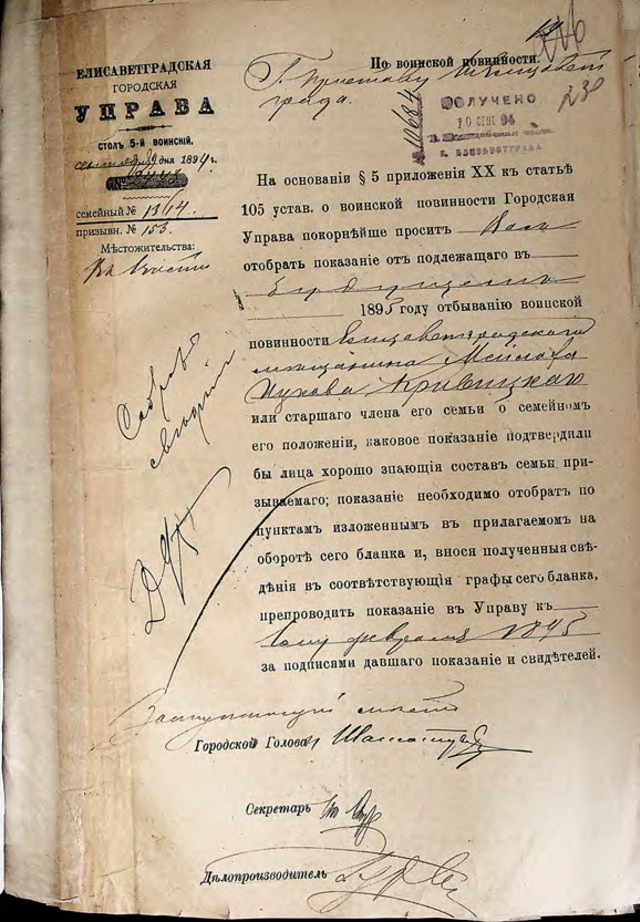 ЕЛИСАВЕТГРАДСКАЯ
ГОРОДСКАЯ
УПРАВА
СТОЛЪ 5-й ВОИНСКІЙ.
дня 1894 г.
семейный № 13/14
призывн. № 153
Мѣстожительства:
По воинской повинности.
Г. Приставу
града.
№ 10684
ПОЛУЧЕНО
10 СЕНТ 94
230
На основаніи § 5 приложенія XX къ статьѣ
105 устав. о воинской повинности Городская
Управа покорнѣйше проситъ Васъ
отобрать показаніе отъ подлежащаго въ
будущемъ
1895 году отбыванію воинской
повинности Елисаветградскаго
мѣщанина
Кривицкаго
или старшаго члена его семьи о семейномъ
его положеніи, каковое показаніе подтвердили
бы лица хорошо знающія составъ семьи при-
зываемаго; показаніе необходимо отобрат по
пунктамъ изложеннымъ въ прилагаемомъ на
оборотѣ сего бланка и, внося полученныя свѣ-
дѣнія въ соотвѣтствующія графы сего бланка,
препроводить показаніе въ Управу къ
февраля 1895
за подписями давшаго показаніе и свидѣтелей.
Городской Голова
Секретарь
Дѣлопроизводитель